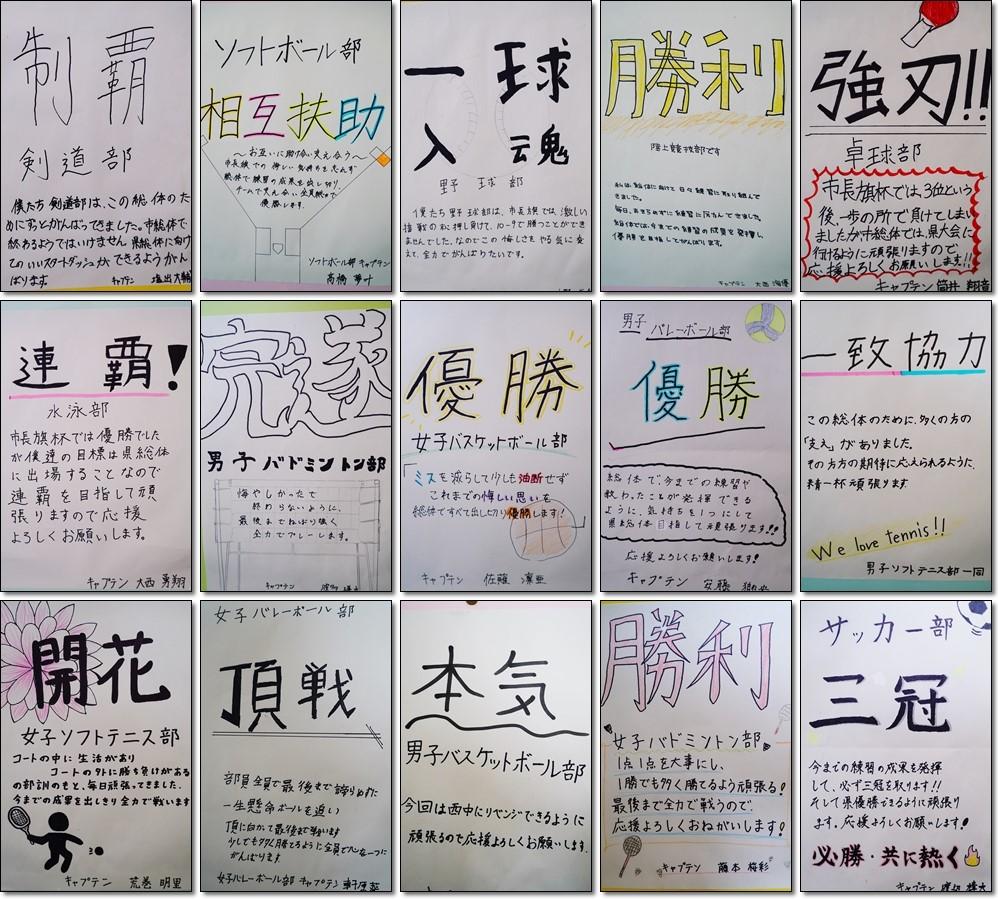 制覇
剣道部
僕たち剣道部は、この総体のた
めにずっとがんばってきました。市総体で
終わるようではいけません。県総体に向け
てのいいスタートダッシュができるようがん
ばります。
キャプテン 塩出大輔
ソフトボール部
相互扶助
〜お互いに助け合い支え合う〜
市長旗での悔しい気持ちを忘れず
総体で練習の成果を出し切り、
チームで支え合い全員輝いて
優勝します。
ソフトボール部キャプテン
高橋夢叶
一球
入魂
野球部
僕たち野球部は、市長旗では、激しい
接戦の末に押し負けて、10-9で勝つことができ
ませんでした。なのでこの悔しさをやる気に変
えて、全力でがんばりたいです。
勝利
陸上競技部です
私は、総体に向けて日々練習に取り組んで
きました。
毎日、あきらめずに練習に尽力してきました。
総体では、今までの練習の成果を発揮し、
優勝を目指してがんばります。
キャプテン 大西
強刃!!
卓球部
市長旗杯では、3位という
後、一歩の所で負けてしまい
ましたが市総体では、県大会に
行けるように頑張りますので、
応援よろしくお願いします!!
キャプテン 筒井翔音
連覇!
水泳部
市長旗杯では優勝でした
が僕達の目標は県総体
に出場することなので
連覇を目指して頑
張りますので応援
よろしくお願いします。
キャプテン 大西勇翔
完遂
男子バドミントン部
悔やしかったで
終わらないように、
最後までねばり強く
全力でプレーします。
キャプテン
優勝
女子バスケットボール部
「ミスを減らして少しも油断せず
これまでの悔しい思いを
総体ですべて出し切り優勝します!
キャプテン 佐薙凜亜
男子バレーボール部
優勝
総体で、今までの練習や
教わったことが発揮できる
ように、気持ちを1つにして
県総体目指して頑張ります!!
応援よろしくお願いします!
キャプテン 安藤
一致協力
この総体のために、多くの方の
「支え」がありました。
その方方の期待に応えられるように、
精一杯頑張ります
We love tennis!!
男子ソフトテニス部一同
開花
女子ソフトテニス部
コートの中に生活があり
コートの外に勝ち負けがある
の部訓のもと、毎日頑張ってきました。
今までの成果を出しきり全力で戦います
キャプテン 荒巻明里
女子バレーボール部
頂戦
部員全員で最後まで諦らめずに
一生懸命ボールを追い
頂に向かって最後まで戦います
少しでも多く勝てるように全員で心を一つに
がんばります
女子バレーボール部 キャプテン
本気
男子バスケットボール部
今回は西中にリベンジできるように
頑張るので応援よろしくお願いします。
勝利
女子バドミントン部
1点1点を大事にし、
1勝でも多く勝てるよう頑張る!
最後まで全力で戦うので、
応援よろしくおねがいします!
キャプテン 藤本梅彩
サッカー部
三冠
今までの練習の成果を発揮
して、必ず三冠を取ります!!
そして県優勝できるように頑張り
ます。応援よろしくお願いします!
必勝・共に熱く
キャプテン 渡辺